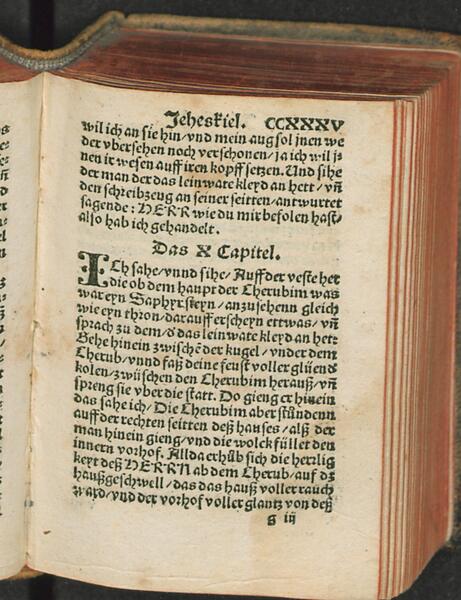 Jeheskiel. CCXXXV
wil ich an sie hin/ vnd mein aug sol jnen we
der vbersehen noch verschonen/ ja ich wil j-
nen ir wesen auff iren kopff setzen. Und sihe
der man der das leinwate kleyd an hett/ vñ
den schreibzeug an seiner seitten/ antwurtet
sagende: HERR wie du mir befolen hast/
also hab ich gehandelt.
Das X Capitel.
ICh sahe/ vnnd sihe/ Auff der veste her
die ob dem haupt der Cherubim was
war eyn Saphyrsteyn/ anzusehenn gleich
wie eyn thron/ darauff erscheyn ettwas/ vñ
sprach zu dem/ d das leinwate kleyd an hett
Gehe hinein zwischē der kugel/ vnder dem
Cherub/ vnnd faß deine feust voller glüend
kolen/ zwüschen den Cherubim herauß/ vñ
spreng sie vber die statt. Do gieng er hinein
das sahe ich/ Die Cherubim aber stůndenn
auff der rechten seitten deß hauses/ alß der
man hinein gieng/ vnd die wolck füllet den
innern vorhof. Allda erhůb sich die herrlig
keyt deß HERRN ab dem Cherub/ auf dz
haußgeschwell/ das das hauß voller rauch
ward/ vnd der vorhof voller glantz von deß
g iij